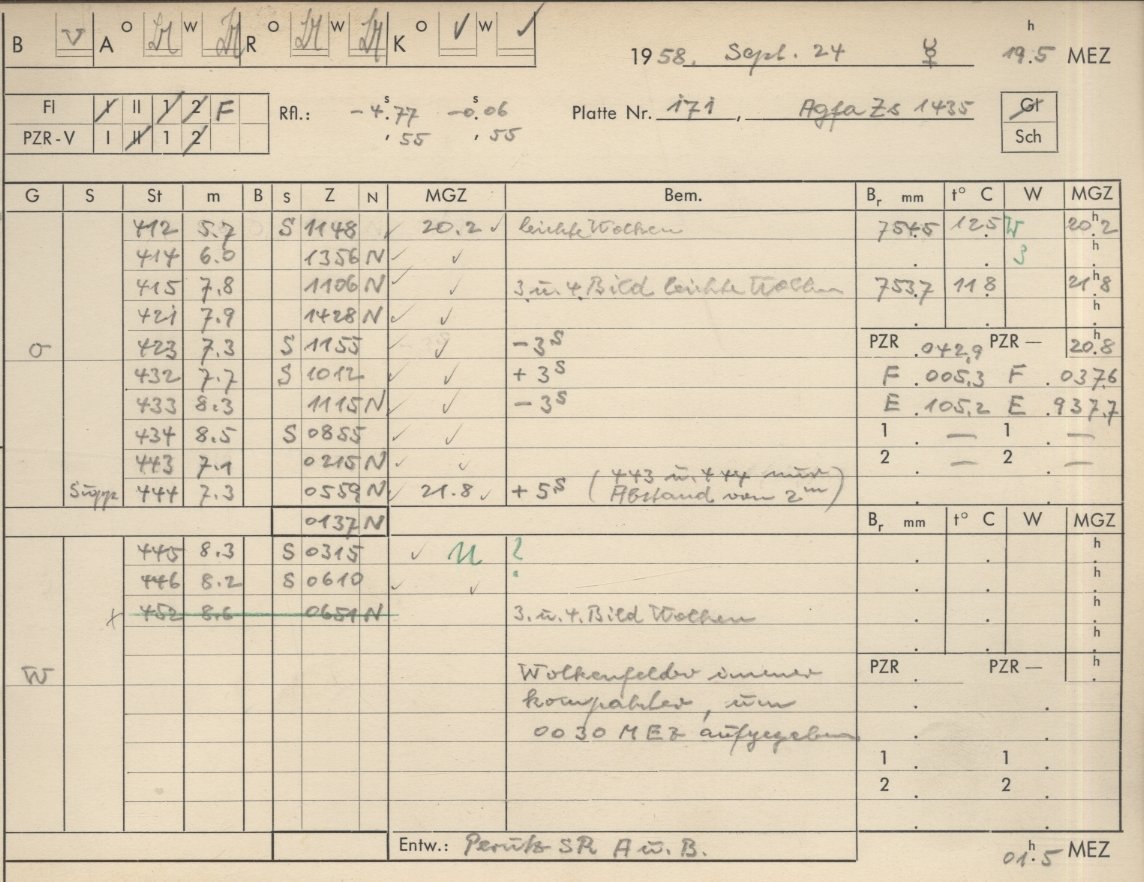 B v A O W R O W K O ✓ W ✓
1958, Sept. 24 ☿ 19.5 h MEZ
Fl I II 1 2 F
PZR-V I II 1 2
Rfl.: -4.77 s -0.06 s
.55 .55
Platte Nr. 171, Agfa Zs 1435
Gl
Sch
G S St m B S Z N MGZ Bem. Br mm t° C W MGZ
412 5.7 S 1148 ✓ 20.2 ✓ leichte Wolken 754.5 12.5 W 20.2 h
414 6.0 1356 N ✓ ✓ 3 h
415 7.8 1106 N ✓ 3. u. 4. Bild leichte Wolken 753.7 11.8 21.8 h
421 7.9 1428 N ✓ ✓ h
O 423 7.3 S 1155 ✓ -3 s PZR .042.9 PZR — 20.8 h
432 7.7 S 1012 ✓ ✓ +3 s F .005.3 F .037.6
433 8.3 1115 N ✓ ✓ -3 s E .105.2 E .937.7
434 8.5 S 0855 ✓ ✓ 1 — 1 —
443 7.1 0215 N ✓ ✓ 2 — 2 —
444 7.3 0559 N ✓ 21.8 ✓ +5 s (443 u. 444 nur
Abstand von 2 m)
0137 N Br mm t° C W MGZ
445 8.3 S 0315 ✓ U ? h
446 8.2 S 0610 ✓ ✓ h
x 452 8.6 0651 N 3. u. 4. Bild Wolken h
h
W Wolkenfelder immer PZR PZR — h
kompakter, um
0030 MEZ aufgegeben
1 1
2 2
Entw.: Perutz SR A u. B.
01.5 h MEZ